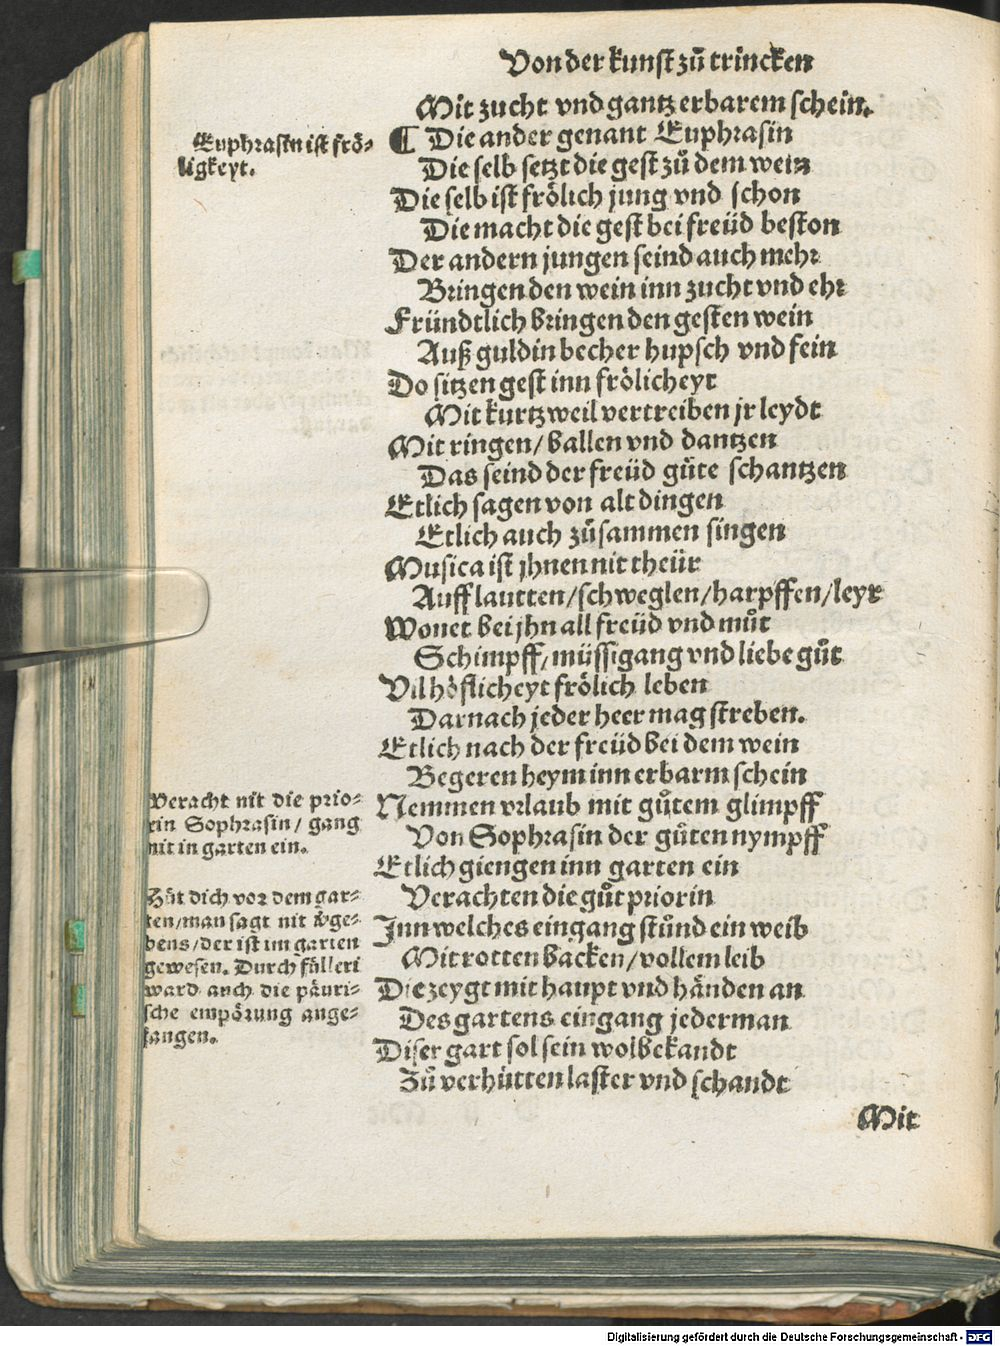 Von der kunst zů trincken
Mit zucht vnd gantz erbarem schein.
Euphrasin ist frö-
ligkeyt.
¶ Die ander genant Euphrasin
Die selb setzt die gest zů dem wein
Die selb ist frölich jung vnd schon
Die macht die gest bei freüd beston
Der andern jungen seind auch mehr
Bringen den wein inn zucht vnd ehr
Fründtlich bringen den gesten wein
Auß guldin becher hupsch vnd fein
Do sitzen gest inn frölicheyt
Mit kurtzweil vertreiben jr leydt
Mit ringen/ ballen vnd dantzen
Das seind der freüd gůte schantzen
Etlich sagen von alt dingen
Etlich auch zůsammen singen
Musica ist jhnen nit theür
Auff lautten/schweglen/harpffen/leyr
Wonet bei jhn all freüd vnd můt
Schimpff/müssigang vnd liebe gůt
Vil höflicheyt frölich leben
Darnach jeder heer mag streben.
Etlich nach der freüd bei dem wein
Begeren heym inn erbarm schein
Nemmen vrlaub mit gůtem glimpff
Von Sophrasin der gůten nympff
Etlich giengen inn garten ein
Verachten die gůt priorin
Inn welches eingang stůnd ein weib
Mit rotten backen/vollem leib
Die zeygt mit haupt vnd händen an
Des gartens eingang jederman
Diser gart sol sein wolbekandt
Zů verhütten laster vnd schandt
Veracht nit die prio-
rin Sophrasin/ gang
nit in garten ein.
Hüt dich vor dem gar-
ten/man sagt nit v̈ge-
bens/der ist im garten
gewesen. Durch fülleri
ward auch die päuri-
sche empörung ange-
fangen.
Mit
Digitalisierung gefördert durch die Deutsche Forschungsgemeinschaft - DFG